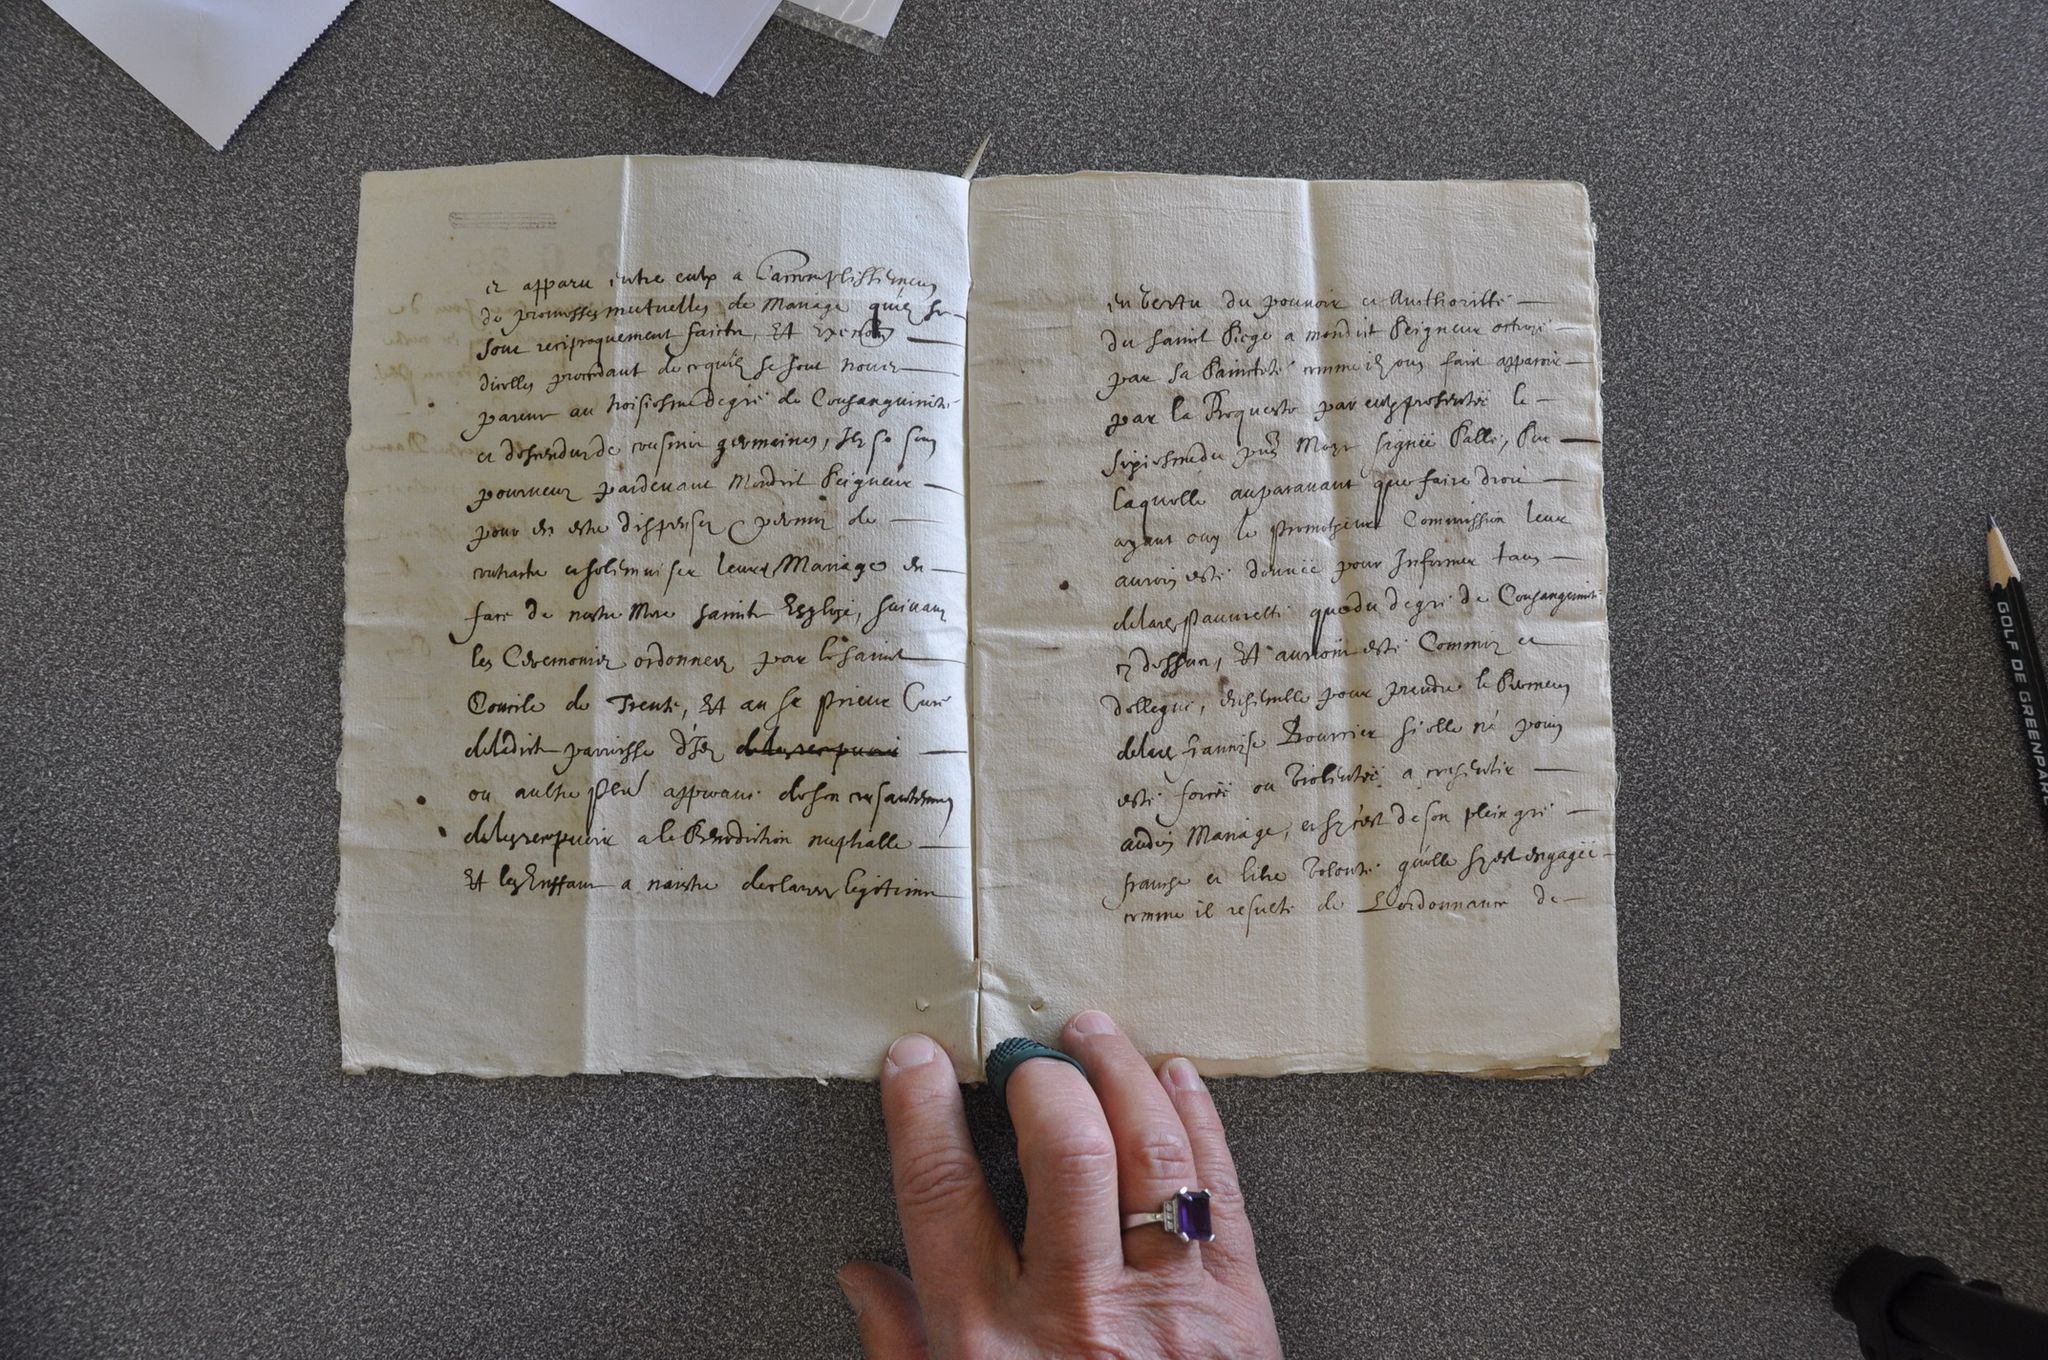 et apparu entre eulx a l'accomplissement
de promesses mutuelles de Mariage quilz se
sont reciproquement faictes, Et
dicelles procedant de ce quilz se sont
parens au troisiesme degré de Consanguinité
et dessendus de cousins germaines, Ilz se sont
pourveuz pardevant Mondict Seigneur
pour en estre dispensez permis de
contracter et solemniser leurs Mariage en
face de nostre Mere saincte Esglize, suivant
les Ceremonies ordonnees par le Sainct
Concile de Trente, Et au Sr Prieur Curé
deladicte parroisse
ou aultre approuvé
a la Benediction nuptialle
Et les Enffans a naistre declarer legitimes
en Vertu du pouvoir et Authoritté
du Sainct Siege a mondict Seigneur octroyé
par Sa Saincteté comme ilz ont faict apparoir
par la Requeste par eulx presentée le
signée
Laquelle auparavant que faire droit
ayant ouy le promotheur Commission leur
auroit esté donnée pour Informer tant
de la pauvretté que du degré de Consanguinité
cy dessus, Et aurions esté Commis et
dellegué, ensemble pour prendre le Serment
de la Françoise Bourrier si elle na point
esté forcée ou Violentée a consentir
audit Mariage, et sy c'est de son plein gré
franche et libre Volonté quelle sy est engagée
comme il resulte de L'ordonnance de
GOLF DE GREENPAR